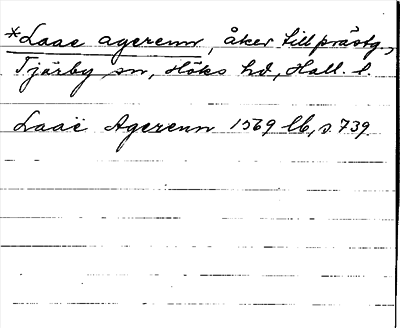 *Laae agerenn, åker till prästg,
Tjärby sn, Höks hd, Hall. l.
Laaë Agerenn 1569 lb, s. 739.